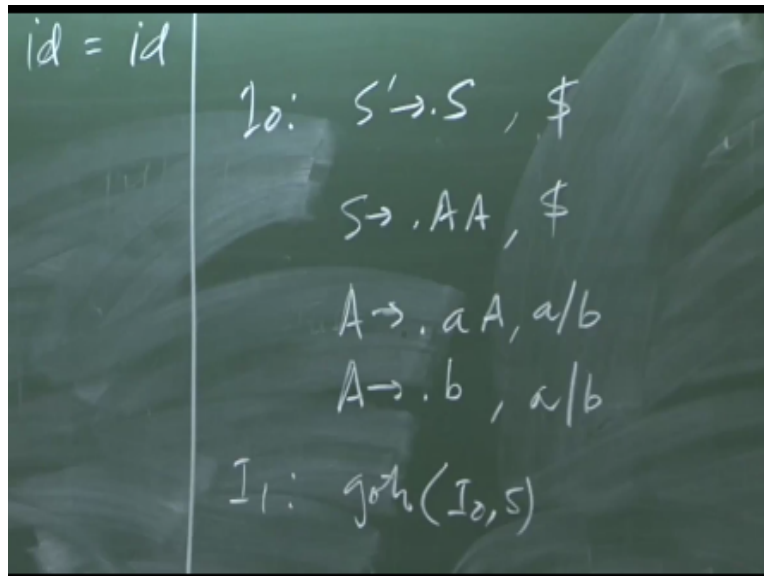 id = id
I0: S'→.S , $
S→ .AA, $
A→ .aA, a/b
A→ .b , a/b
I1: goto(I0,S)